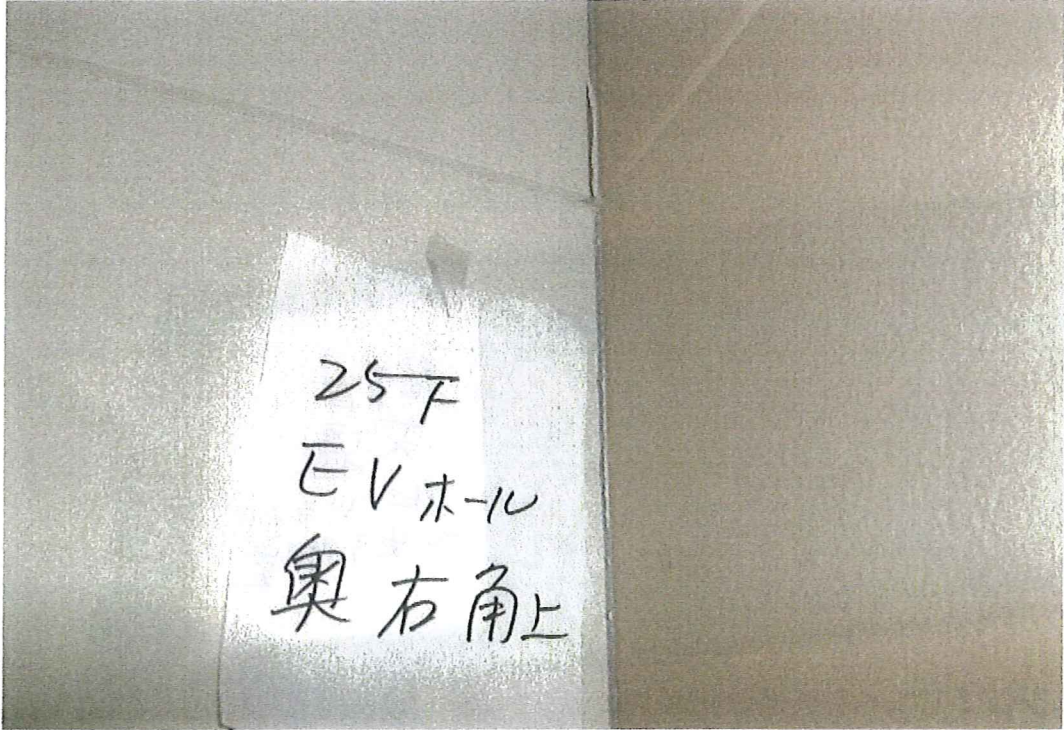 25F
EVホール
奥右角上